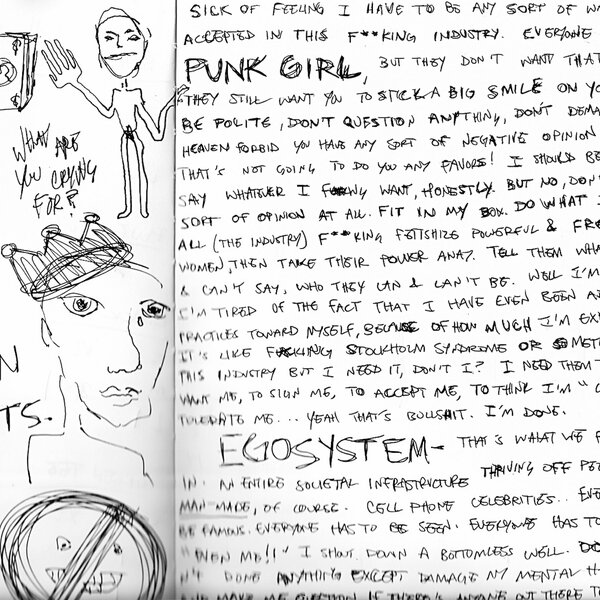 WHAT ARE
YOU CRYING
FOR?
N
TS.
SICK OF FEELING I HAVE TO BE ANY SORT OF
ACCEPTED IN THIS F**KING INDUSTRY. EVERYONE
PUNK GIRL, BUT THEY DON'T WANT THAT
THEY STILL WANT YOU TO STICK A BIG SMILE ON
BE POLITE, DON'T QUESTION ANYTHING, DON'T
HEAVEN FORBID YOU HAVE ANY SORT OF NEGATIVE OPINION
THAT'S NOT GOING TO DO YOU ANY FAVORS! I SHOULD BE
SAY WHATEVER I WANT, HONESTLY. BUT NO, DON
SORT OF OPINION AT ALL. FIT IN MY BOX. DO WHAT I
ALL (THE INDUSTRY) F**KING FETISHIZE POWERFUL & FRE
WOMEN, THEN TAKE THEIR POWER AWAY. TELL THEM WHA
& CAN'T SAY, WHO THEY CAN & CAN'T BE. WELL I'M
I'M TIRED OF THE FACT THAT I HAVE EVEN BEEN
PRACTICES TOWARD MYSELF, BECAUSE OF HOW MUCH I'M EX
IT'S LIKE FUCKING STOCKHOLM SYNDROME OR SOMET
THIS INDUSTRY BUT I NEED IT, DON'T I? I NEED THEM T
WANT ME, TO SIGN ME, TO ACCEPT ME, TO THINK I'M "C
TOLERATE ME... YEAH THAT'S BULLSHIT. I'M DONE.
EGOSYSTEM- THAT'S WHAT WE
IN. AN ENTIRE SOCIETAL INFRASTRUCTURE THRIVING OFF PE
MAN-MADE, OF COURSE. CELL PHONE CELEBRITIES.. EVE
BE FAMOUS. EVERYONE HAS TO BE SEEN. EVERYONE HAS TO
"EVEN ME!!" I SHOUT DOWN A BOTTOMLESS WELL.
N'T DONE ANYTHING EXCEPT DAMAGE MY MENTAL H
AND MAKE ME QUESTION IF THERE'S ANYONE OUT THERE T